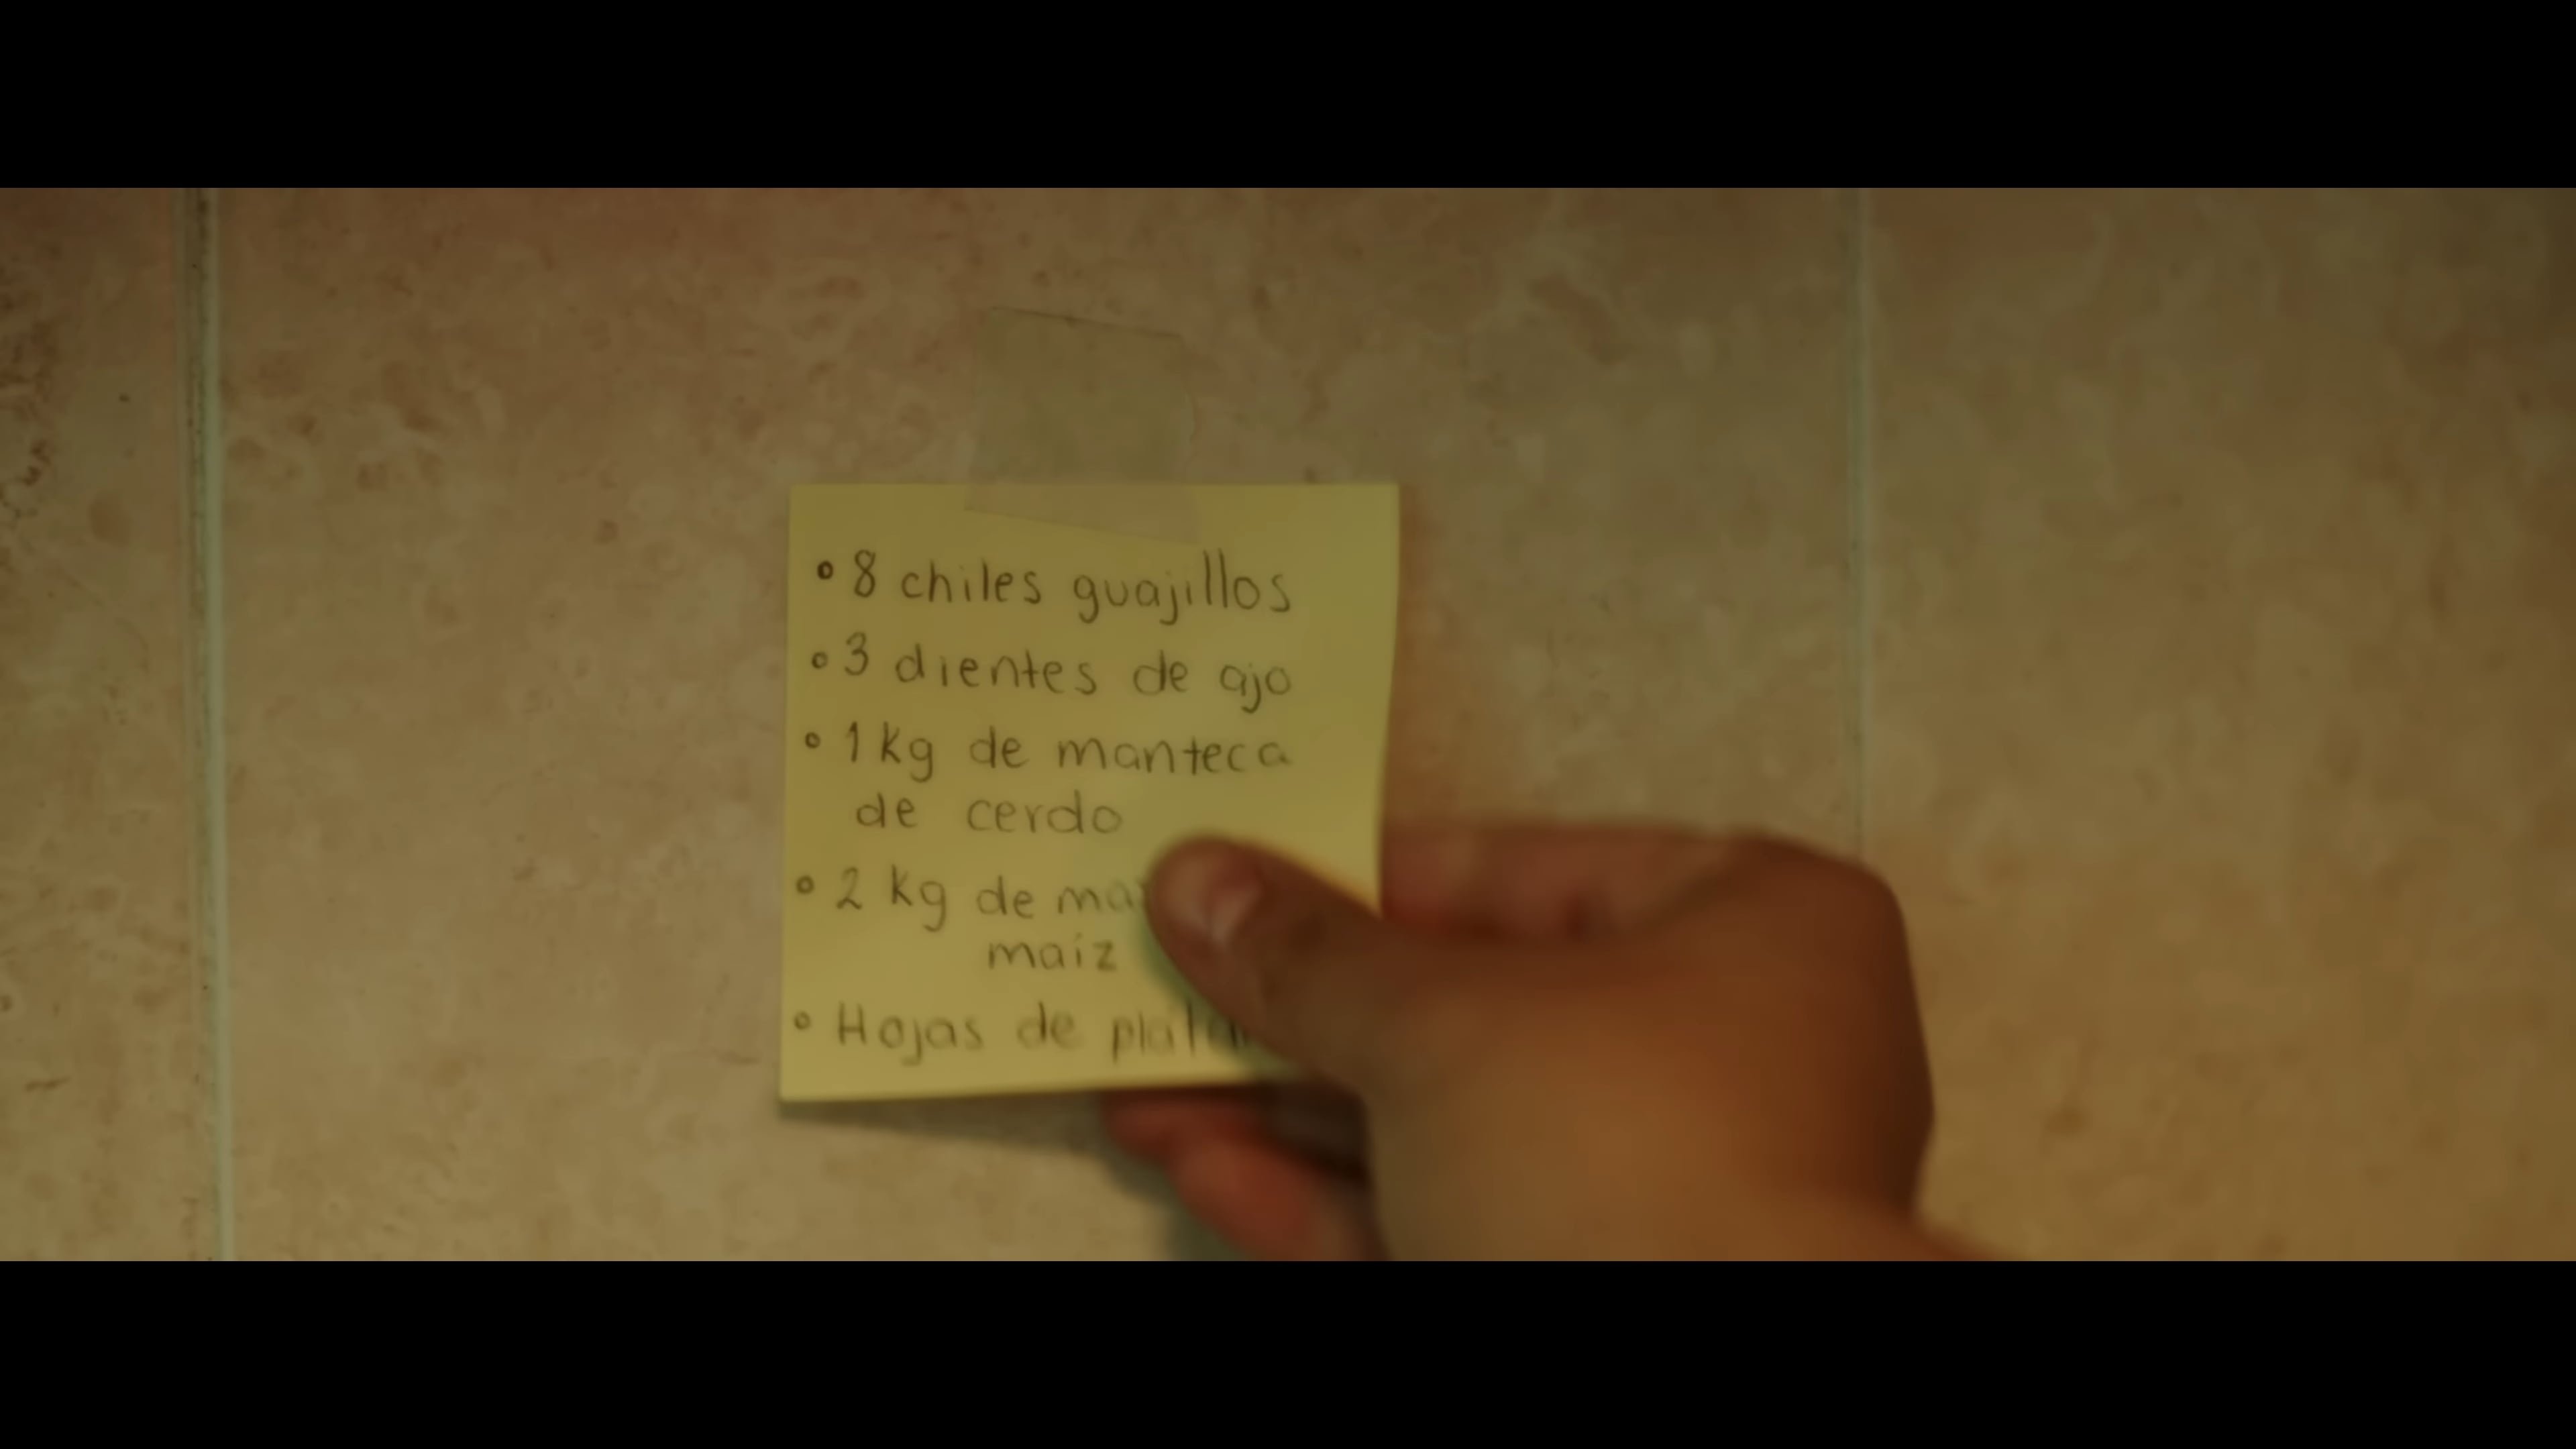 • 8 chiles guajillos
• 3 dientes de ajo
• 1 kg de manteca
de cerdo
• 2 kg de
maíz
• Hojas de